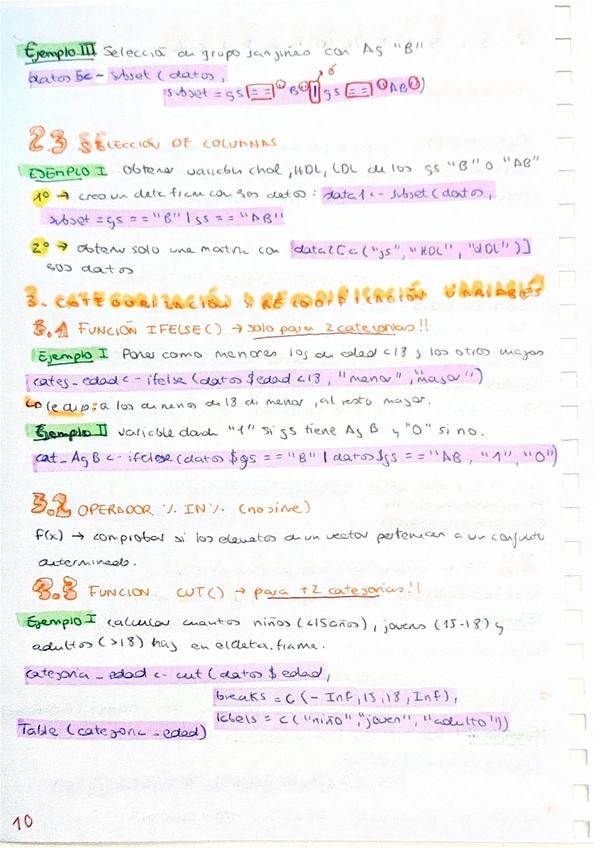 Ejemplo III Selección du grupo sanguíneo con Ag "B"
datos 5 <- subset (datos,
ó
subset = gs == "B" | gs == "AB")
2.3 SELECCIÓN DE COLUMNAS
EJEMPLO I Obtener variable chol, HDL, LDL de los gs "B" o "AB"
1º → creo un data frame con sos datos: data1 <- subset (datos,
subset = gs == "B" | gs == "AB"
2º → obtener solo una matriz con data2 [c("gs", "HDL", "LDL")]
sos datos
3. CATEGORIZACIÓN Y RECODIFICACIÓN VARIABLES
3.1 FUNCIÓN IFELSE() → solo para 2 categorías!!
Ejemplo I Poner como menores los du edad <18 y los otros mayor
categ_edad <- ifelse (datos $edad <18, "menor", "mayor")
↳ le digo: a los du menos de 18 di menor, al resto mayor.
Ejemplo II variable donde "1" si gs tiene Ag B y "0" si no.
cat_AgB <- ifelse (datos $gs == "B" | datos $gs == "AB, "1", "0")
3.2 OPERADOR %IN% (no sirve)
f(x) → comprobar si los elementos du un vector pertenecen a un conjunto
determinado.
3.3 FUNCION CUT() → para +2 categorías!!
Ejemplo I calcular cuantos niños (<15 años), jovens (15-18) y
adultos (>18) hay en el data.frame.
categoria_edad <- cut (datos $edad,
breaks = c(-Inf, 15, 18, Inf),
labels = c("niño", "joven", "adulto"))
Table (categoria_edad)
10